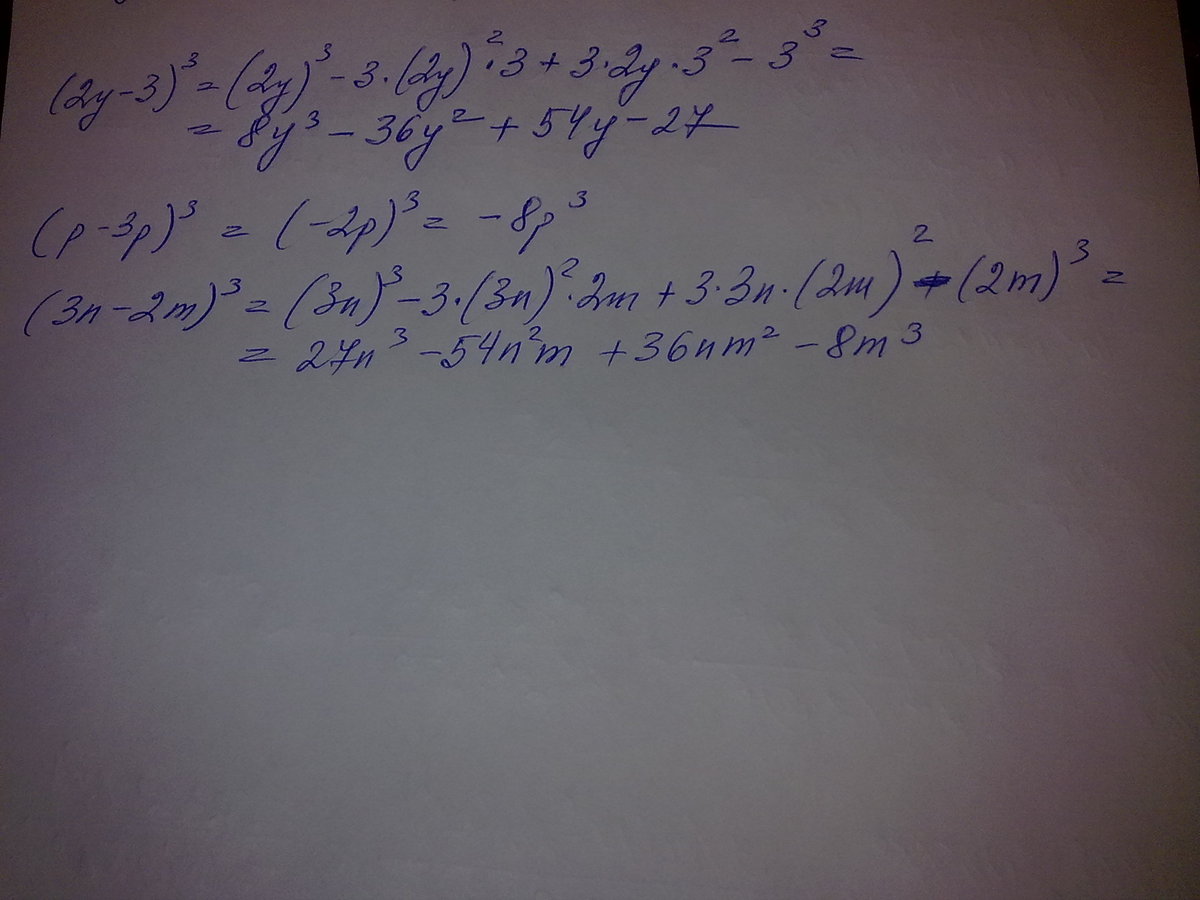 (2y-3)³ = (2y)³ - 3·(2y)²·3 + 3·2y·3² - 3³ =
= 8y³ - 36y² + 54y - 27
(p-3p)³ = (-2p)³ = -8p³
(3n-2m)³ = (3n)³ - 3·(3n)²·2m + 3·3n·(2m)² - (2m)³ =
= 27n³ - 54n²m + 36nm² - 8m³